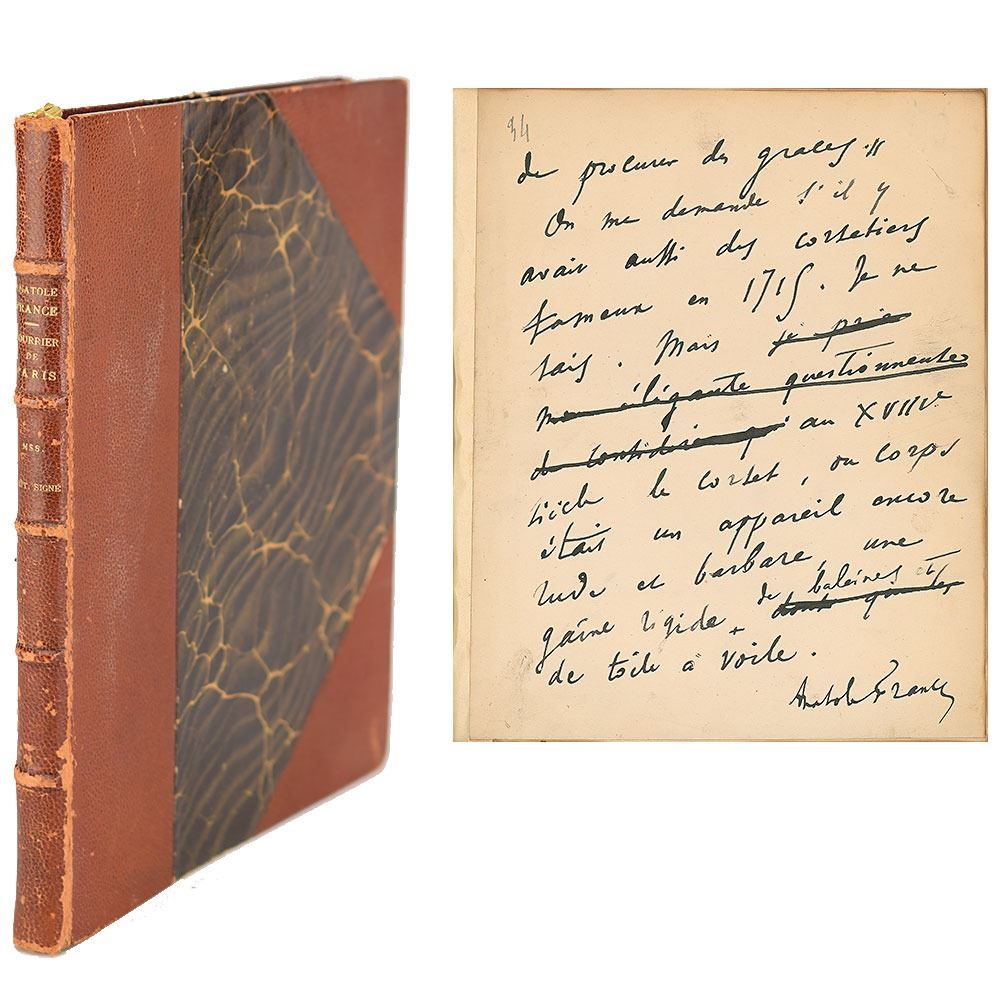 ANATOLE
FRANCE
COURRIER
DE
PARIS
MSS.
AUT. SIGNÉ
34
de procurer des graces."
On me demande s'il y
avait aussi des corsetiers
fameux en 1715. Je ne
sais. Mais je prie
mon éligante questionneuse
de considérer qu' au XVIIIe
siècle le corset, ou corps
était un appareil encore
rude et barbare, une
gaîne rigide de baleines et
dont
de toile à voile.
Anatole France